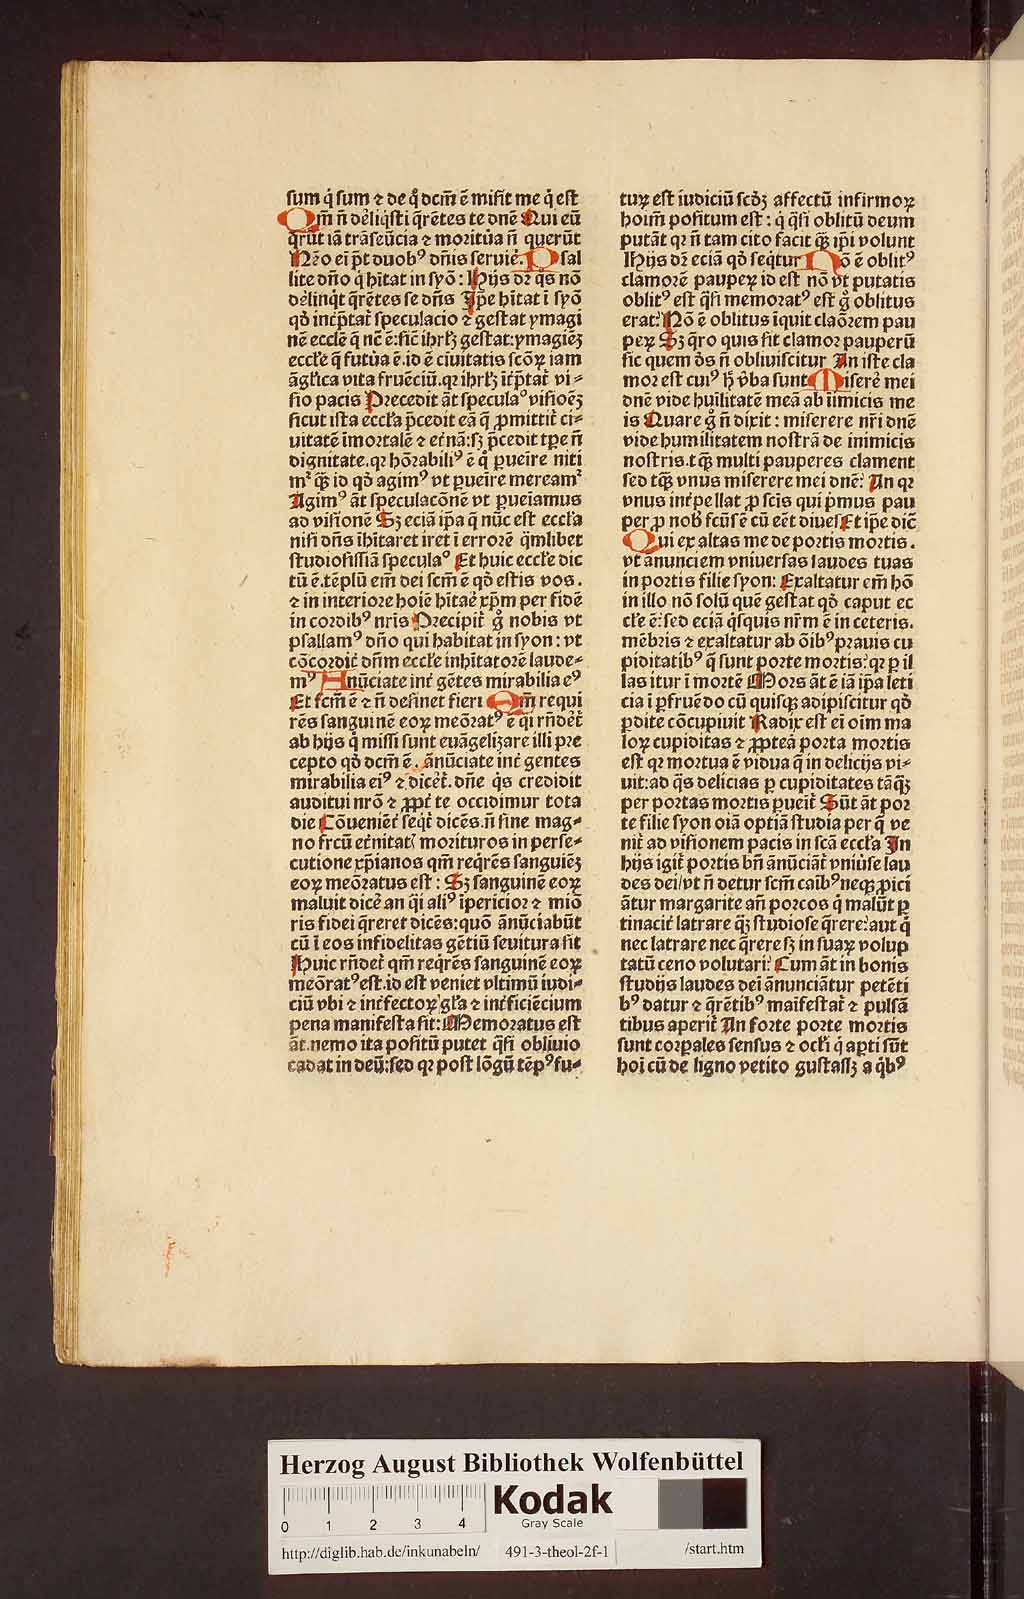 sum q̇ sum ⁊ de q̊ dcm̄ ē misit me q̇ est
Qm̄ n̄ dêliq̇sti q̄rētes te dnē Qui eū
q̄rūt iā trāseūcia ⁊ moritûa n̄ querūt
Nēo eī pt̄ duobꝰ dn̄is seruiē. Psal
lite dn̄o q̇ hītat in syō: Hijs dꝛ q̇s nō
dêlinq̇t q̄rētes se dn̄s Ip̄e hītat ī syō
qd̓ intp̄tat᷑ speculacio ⁊ gestat ymagi
nē eccl̄e q̄ nc̄ ē: sic̄ ihrlꝫ gestat: ymagieꝫ
eccl̄e q̄ futûa ē. id ē ciuitatis scōꝝ iam
āgl̄ica vita fruēciū. qꝛ ihrlꝫ īt̓p̄tat᷑ vi⸗
sio pacis Precedit āt specula° visioēꝫ
sicut ista eccl̄a p̄cedit eā q̄ ꝓmittit᷑ ci⸗
uitatē īmortalē ⁊ et̓nā: sꝫ p̄cedit tp̄e n̄
dignitate. qꝛ hōꝛabiliꝰ ē q̊ ꝑueīre niti
mᷣ q̄ꝫ id qd̓ agimꝰ vt ꝑueīre mereamᷣ
Agimꝰ āt speculacōnē vt ꝑueīamus
ad visionē Sꝫ eciā ip̄a q̄ nūc est eccl̄a
nisi dn̄s īhītaret iret ī errorē q̄mlibet
studiosissiā specula° Et huic eccl̄e dic
tū ē. tēplū em̄ dei scm̄ ē qd̓ estis vos.
⁊ in interiore hoiē hītaē xp̄m per fidē
in cordibꝰ nr̄is Precipit᷑ g̊ nobis vt
psallamꝰ dn̄o qui habitat in syon: vt
cōcordit̓ dn̄m eccl̄e inhītatorē laude⸗
mꝰ Anūciate int̓ gētes mirabilia eꝰ
Et fcm̄ ē ⁊ n̄ desinet fieri Qm̄ requi
rēs sanguinē eoꝝ meōratꝰ ē q̇i rn̄dēt᷑
ab hijs q̇ missi sunt euāgelizare illi pre
cepto qd̓ dcm̄ ē. anūciate int̓ gentes
mirabilia eiꝰ ⁊ dicēt᷑. dn̄e q̇s credidit
auditui nr̄o ⁊ ꝓpt̓ te occidimur tota
die Cōueniēt᷑ seq̇t᷑ dicēs. n̄ sine mag⸗
no frcū et̓nitatꝭ morituros in perse⸗
cutione xp̄ianos qm̄ req̇rēs sanguiēꝫ
eoꝝ meōratus est: Sꝫ sanguinē eoꝝ
maluit dicē an q̇i aliꝰ īpericioꝛ ⁊ mīo
ris fidei q̄reret dicēs: quō ānūciabūt
cū ī eos infidelitas gētiū seuitura sit
Huic rn̄det᷑ qm̄ req̇rēs sanguinē eoꝝ
meōratꝰ est. id est veniet vltimū iudi⸗
ciū vbi ⁊ int̓fectoꝝ gl̄a ⁊ int̓ficiēcium
pena manifesta sit: Memoratus est
āt. nemo ita positū putet q̄si obliuio
cadat in deū: sed qꝛ post lōgū tēpꝰ fu⸗
tuꝝ est iudiciū scd̓ꝫ affectū infirmoꝝ
hoim̄ positum est: q̇ q̄si oblitū deum
putāt qꝛ n̄ tam cito facit q̄ꝫ ip̄i volunt
Hijs dꝛ eciā qd̓ seq̇tur Nō ē oblitꝰ
clamorē paupeꝝ id est nō vt putatis
oblitꝰ est q̄si memoratꝰ est g̊ oblitus
erat: Nō ē oblitus īquit claōrem pau
peꝝ Sꝫ q̄ro quis sit clamor pauperū
sic quem d̄s n̄ obliuiscitur An iste cla
mor est cuiꝰ h̄ v̓ba sunt Miserē mei
dnē vide huīlitatē meā ab īimicis me
is Quare g̊ n̄ dixit: miserere nr̄i dnē
vide humilitatem nostrā de inimicis
nostris. tq̄ꝫ multi pauperes clament
sed tq̄ꝫ vnus miserere mei dnē: An qꝛ
vnus int̓pellat ꝓ scīs qui pīmus pau
per ꝓ nob̄ fcūs ē cū eēt diues Et ip̄e dic̄
Qui exaltas me de portis mortis.
vt anunciem vniuersas laudes tuas
in portis filie syon: Exaltatur em̄ hō
in illo nō solū quē gestat qd̓ caput ec
cl̄e ē: sed eciā q̇squis nr̄m ē in ceteris.
mēbris ⁊ exaltatur ab ōibꝰ prauis cu
piditatibꝰ q̄ sunt porte mortis: qꝛ ꝑ il
las itur ī mortē Mors āt ē iā ip̄a leti
cia ī ꝑfruēdo cū quisqꝫ adipiscitur qd̓
ꝑdite cōcupiuit Radix est eī oīm ma
loꝝ cupiditas ⁊ ꝓpteā porta mortis
est qꝛ mortua ē vidua q̄ in delicijs vi⸗
uit: ad q̄s delicias ꝑ cupiditates tāq̄ꝫ
per portas mortis ꝑueit᷑ Sūt āt por
te filie syon oīā optīā studia per q̄ ve
nit᷑ ad visionem pacis in scā eccl̄a In
hijs igit᷑ portis bn̄ ānūciāt᷑ vniūse lau
des dei/vt n̄ detur scm̄ caībꝰ neqꝫ ꝓici
ātur margarite añ porcos q̇ malūt ꝑ
tinacit̓ latrare q̄ꝫ studiose q̄rere: aut q̇
nec latrare nec q̄rere sꝫ in suaꝝ volup
tatū ceno volutari: Cum āt in bonis
studijs laudes dei ānunciātur petēti
bꝰ datur ⁊ q̄rētibꝰ maīfestat᷑ ⁊ pulsā
tibus aperit᷑ An forte porte mortis
sunt corpales sensus ⁊ ocl̄i q̇ aꝑti sūt
hoī cū de ligno vetito gustassꝫ a q̇bꝰ
Herzog August Bibliothek Wolfenbüttel
0 1 2 3 4
Kodak
Gray Scale
http://diglib.hab.de/inkunabeln/ 491-3-theol-2f-1 /start.htm